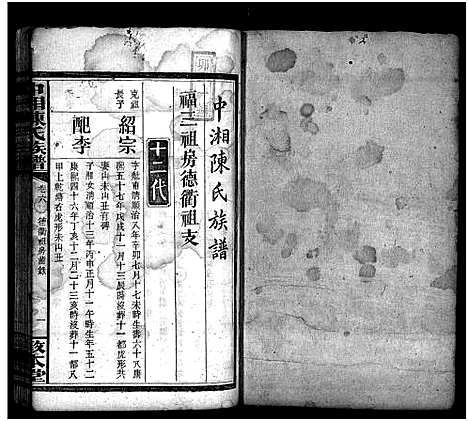 中湘陳氏族譜
福三祖房德衢祖支
十二代
克紹長子
紹宗
字乾甫清順治八年辛卯七月十七未時生壽六十八康
熙五十七年戊戌十一月十三辰時沒葬十一都虎形共
妻山未山丑有碑
配李
子湘女清順治十三年丙申正月十一午時生年五十二
康熙四十六年丁亥十二月二十三亥時沒葬十一都八
甲上乾塘右虎形未山丑
中湘陳氏族譜
卷六
德衢祖房齒錄